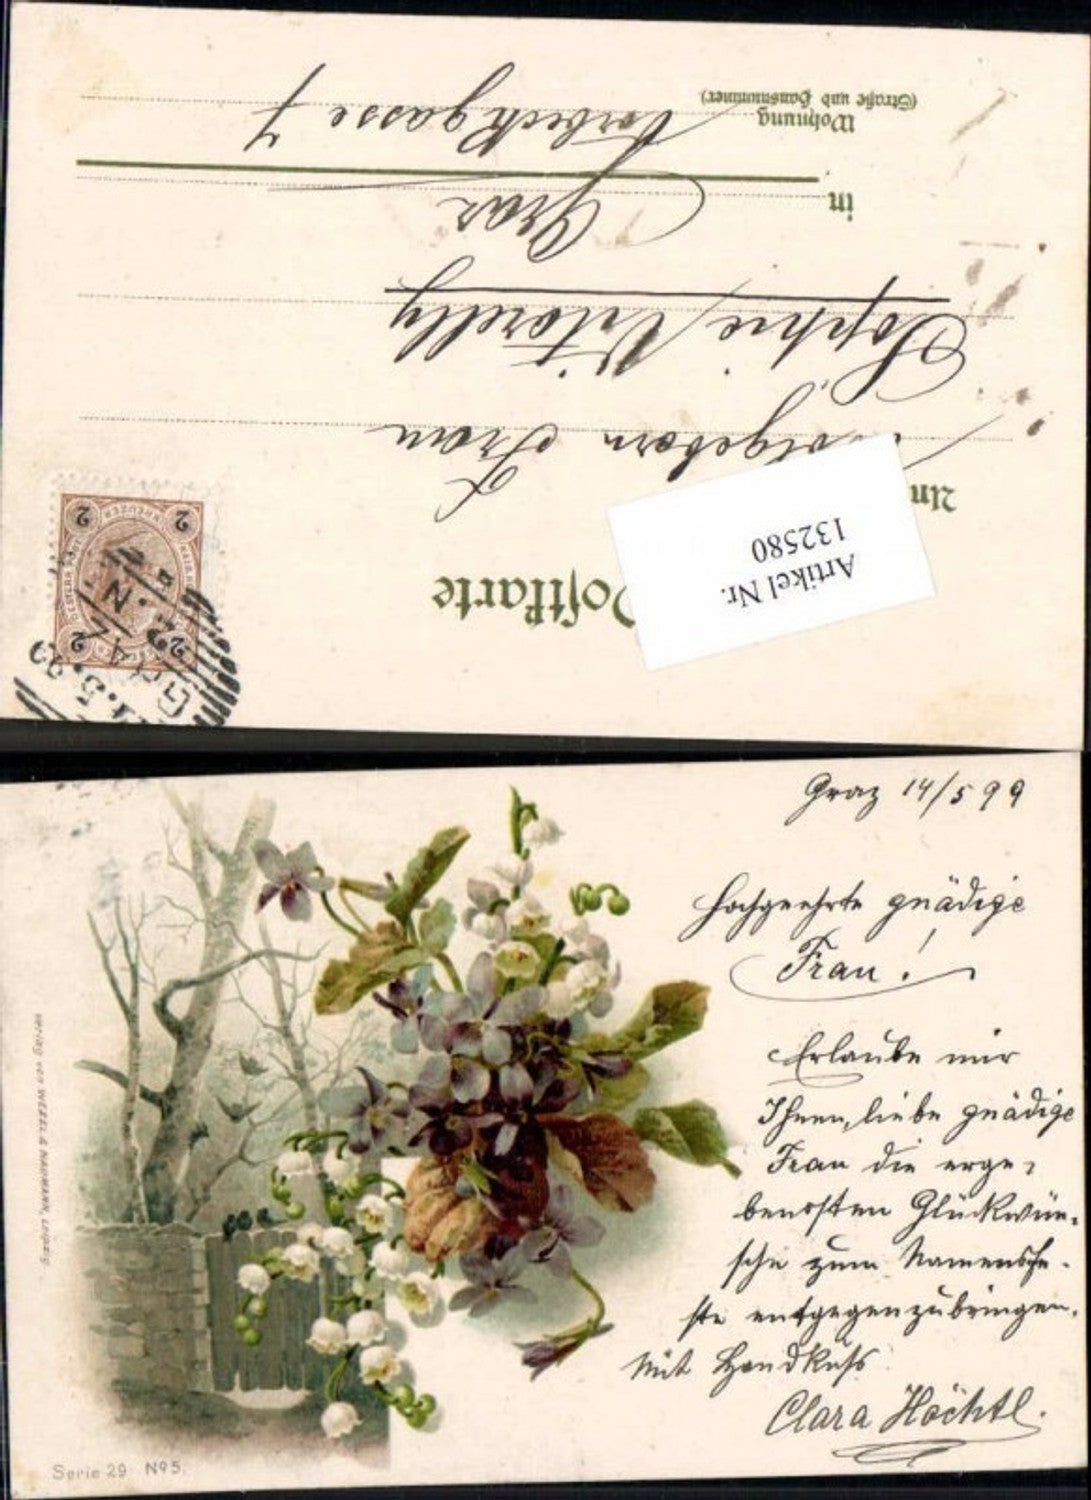 Postkarte
An
Wolgeborn Frau
Sophie Vitorelly
in Graz
Wohnung
(Straße und Hausnummer)
Körbeckgasse 7
Artikel Nr.
132580
2 2
KREUZER
2 2
GRAZ
14.5.99
Graz 14/5 99
Hochgeehrte gnädige
Frau!
Erlaube mir
Ihnen, liebe gnädige
Frau die erge-
bensten Glückwün-
sche zum Namensfe-
ste entgegenzubringen.
Mit Handkuss
Clara Höchtl.
Verlag von WEZEL & NAUMANN, Leipzig
Serie 29 Nº 5.